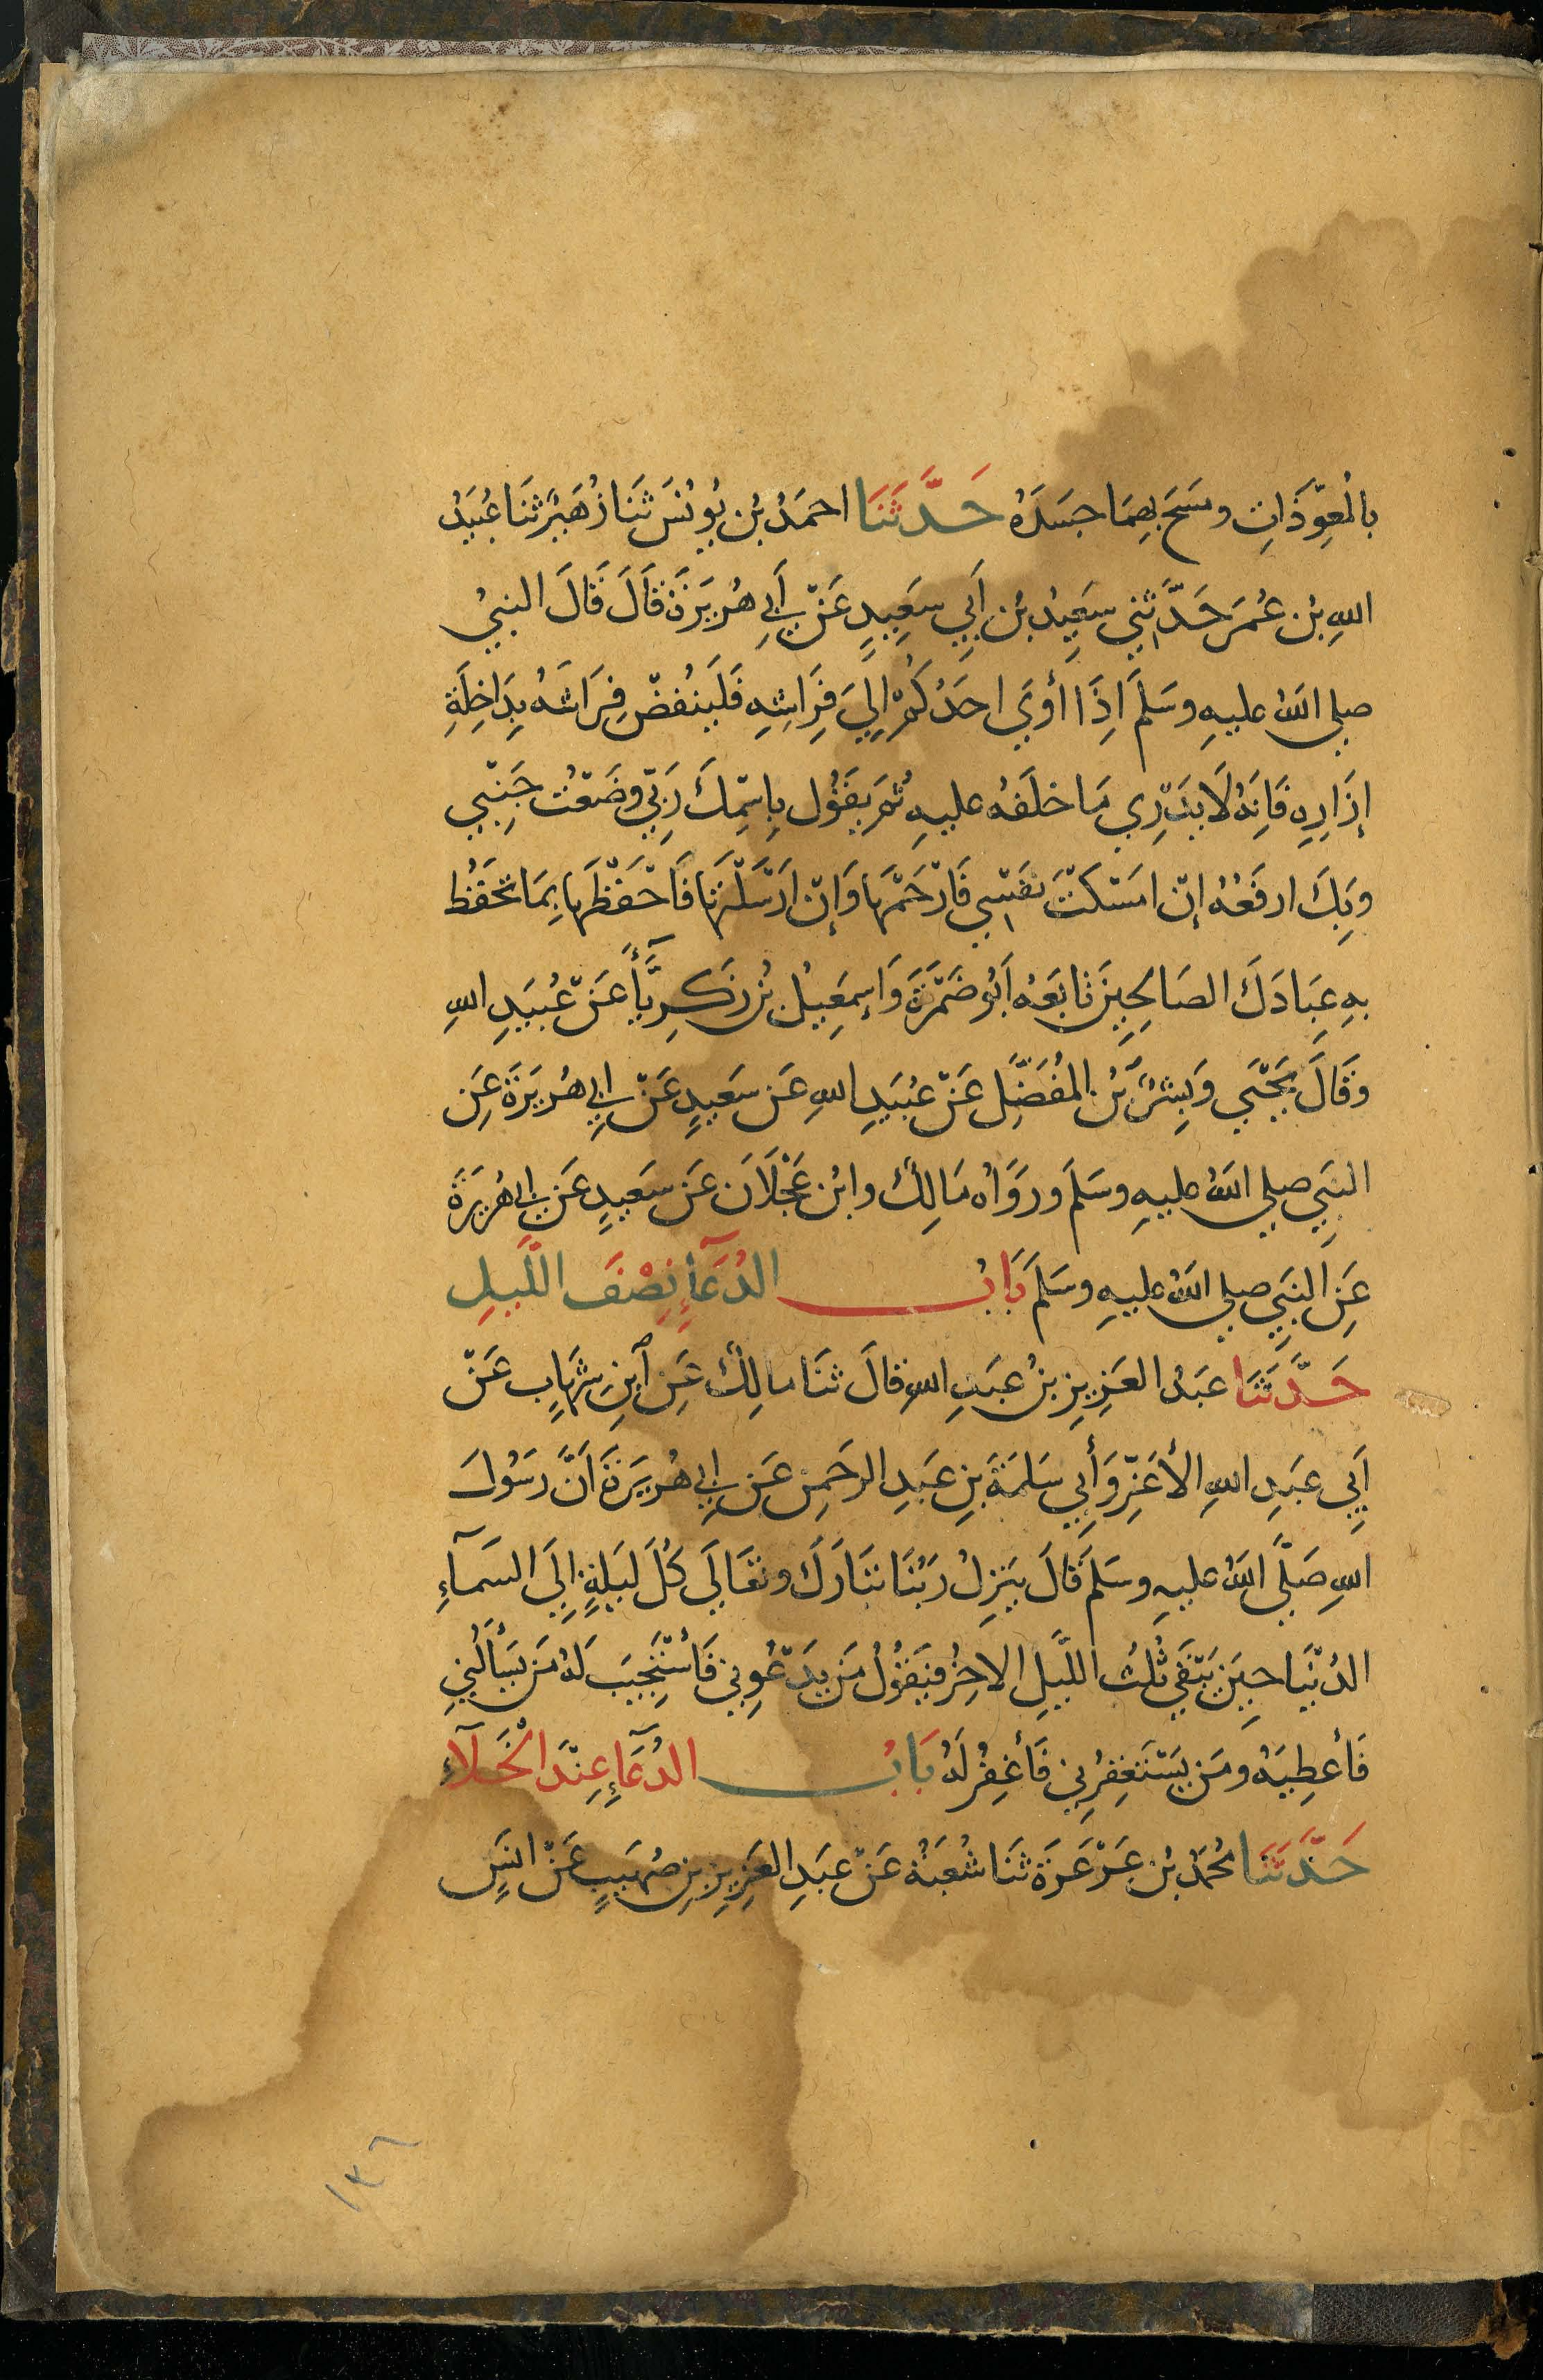 بالْمُعِوّذَاتِ ومسَحَ بِهِمَا جسَدَهُ حَدَّثَنَا احمَدُ بْن يُونُسَ ثَنَا زُهَيْر ثَنَا عُبَيْدُ
اللهِ بْن عُمَرَ حَدَّثَنِي سعِيدُ بْن أَبِي سعَِيدٍ عَنْ أَبِي هُرَيرَةَ قَالَ قَالَ النبيُّ
صلى اللهُ عليهِ وسَلَّمَ اِذَا أوَي احَدُكُمْ اِلَيَ فِرَاشِهِ فَليَنفُضْ فِرَاشَهُ بِدَاخِلَةِ
إزَارِهِ فَاِنَهُ لَا يَدْرِي مَا خلَفَهُ عليهِ ثُمَّ يقَوُل بِاسْمِكَ رَبِّي وضَعْتُ جَنْبِي
وبِكَ ارفَعُهُ إنْ امسَكْتَ نفَسِْي فَارْحَمْهَا وَإنْ ارَسَلْتَهَا فَاحْفَظْهَا بِمَا تحَفَظُ
بهِ عِبَادَكَ الصَالِحِينَ تابَعَهُ اَبُو ضَمْرَةَ وَإسمَعِيلُ بْنُ زَكَرِيَّآءَ عَنْ عُبَيدِ اللهِ
وَقَالَ يَحْيَي وَبِشْرُ بْنُ المُفَضَّل عَنْ عُبَيدِ اللهِ عَن سعَيدٍ عَنْ ابِي هُرَيرَةَ عَنِ
النبَِي صلي اللهُ عليهِ وسَلمَ ورَوَاهُ مَالِكُ وابْن عَجْلَانَ عَن سَعيدٍ عَن ابِي هُرَيرَةَ
عَنِ النبَِي صلي اللهُ عليهِ وسَلمَ بَابُ الدُعَآءِ نِصْفَ اللَّيلِ
حَدَّثَنَا عبَدُ العَزِيزِ بْنُ عبَدِ اللهِ قالَ ثَنَا مالِكُ عَنِ ابْنِ شِهَابٍ عَنْ
أَبِي عبَدِ اللهِ الأغَرِّ وَأَبِي سَلَمَةَ بْنِ عبَدِ الرحَمنِ عَن ابِي هُرَيرَةَ اَنَّ رسَوُلَ
اللهِ صَلَّى اللهُ عليهِ وسَلمَ قَالَ يَنزِلُ رَبُنَا تبَارَكَ وتَعَالَي كُلَ لَيلَةٍ اِلَيَ السَمآءِ
الدُنْيَا حِينَ يَبْقَي ثُلثُ اللَّيلِ الاخِرُ فيَقوُلُ مَن يَدْعُونِي فَاسْتَجِيبَ لَهُ مَن يَسْأَلُنِي
فَأعطِيَهُ ومَن يَسْتَغفِرُنِي فَأغفِرُ لَهُ بَابُ الدُعَآءِ عِنْدَ الْخَلآءِ
حَدَّثَنَا مُحَمدُ بْن عَرْعَرَةَ ثَنَا شُعْبَةُ عَنْ عبَدِ العَزِيزِ بْنِ صُهَيبٍ عَنْ انَسٍ
١٣٦